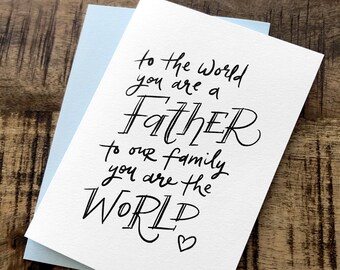 to the world
you are a
FatHER
to ouR family
you are the
WORLD